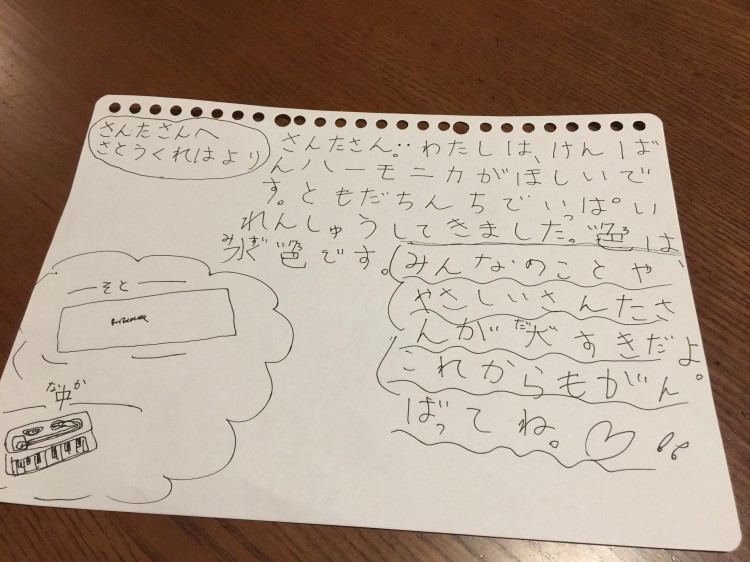 さんたさんへ
さとうくれはより
さんたさん‥わたしは、けんば
んハーモニカがほしいで
す。ともだちんちでいっぱい
れんしゅうしてきました。色は、
水色です。
みんなのことや
やさしいさんたさ
んが大すきだよ。
これからもがん
ばってね。
そと
なか
中